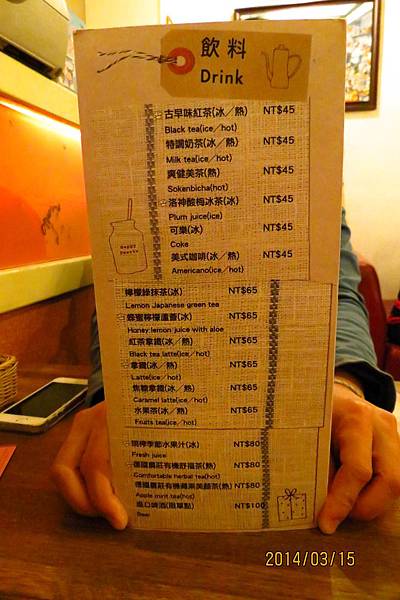 飲料
Drink
古早味紅茶(冰／熱) NT$45
Black tea(ice／hot)
特調奶茶(冰／熱) NT$45
Milk tea(ice／hot)
爽健美茶(熱) NT$45
Sokenbicha(hot)
洛神酸梅冰茶(冰) NT$45
Plum juice(ice)
可樂(冰) NT$45
Coke
美式咖啡(冰／熱) NT$45
Americano(ice／hot)
檸檬綠抹茶(冰) NT$65
Lemon Japanese green tea
蜂蜜檸檬蘆薈(冰) NT$65
Honey lemon juice with aloe
紅茶拿鐵(冰／熱) NT$65
Black tea latte(ice／hot)
拿鐵(冰／熱) NT$65
Latte(ice／hot)
焦糖拿鐵(冰／熱) NT$65
Caramel latte(ice／hot)
水果茶(冰／熱) NT$65
Fruits tea(ice／hot)
現榨季節水果汁(冰) NT$80
Fresh juice
德國農莊有機舒福茶(熱) NT$80
Comfortable herbal tea(hot)
德國農莊有機蘋果美顏茶(熱) NT$80
Apple mint tea(hot)
進口啤酒(限單點) NT$100
Beer
2014/03/15